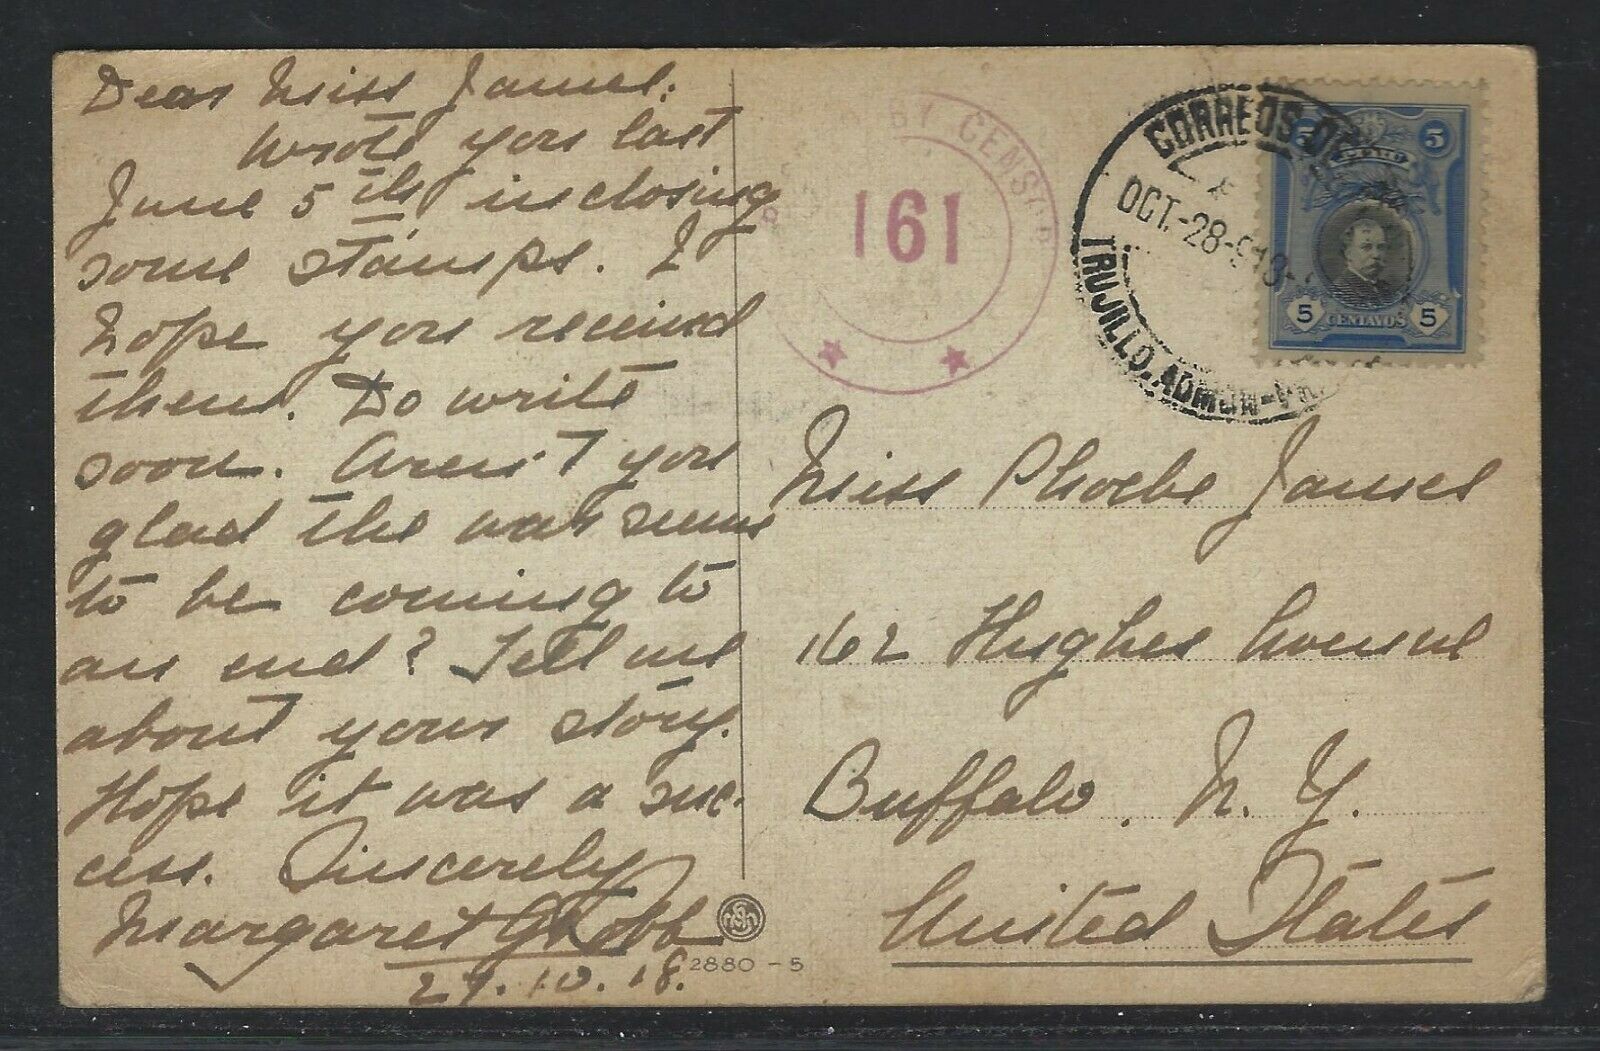 Dear Miss James:
Wrote you last
June 5th inclosing
some stamps. I
hope you received
them. Do write
soon. Aren't you
glad the war seems
to be coming to
an end? Tell me
about your story.
Hope it was a suc-
cess. Sincerely
Margaret Robb
10.18.
2880 - 5
BY CENSOR
161
CORREOS DE
OCT.-28-918-
TRUJILLO.
5 5
CENTAVOS
5 5
Miss Phoebe James
162 Hughes Avenue
Buffalo, N. Y.
United States